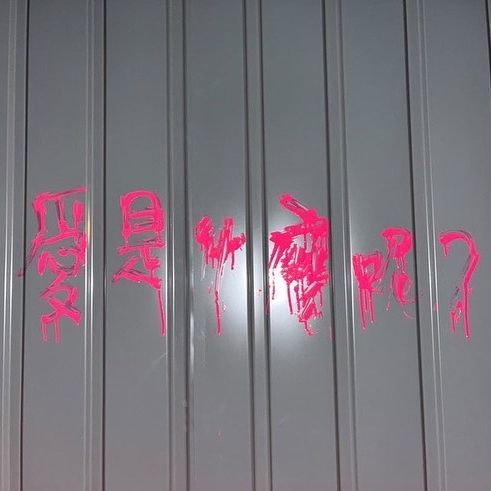 愛是什麼呢?